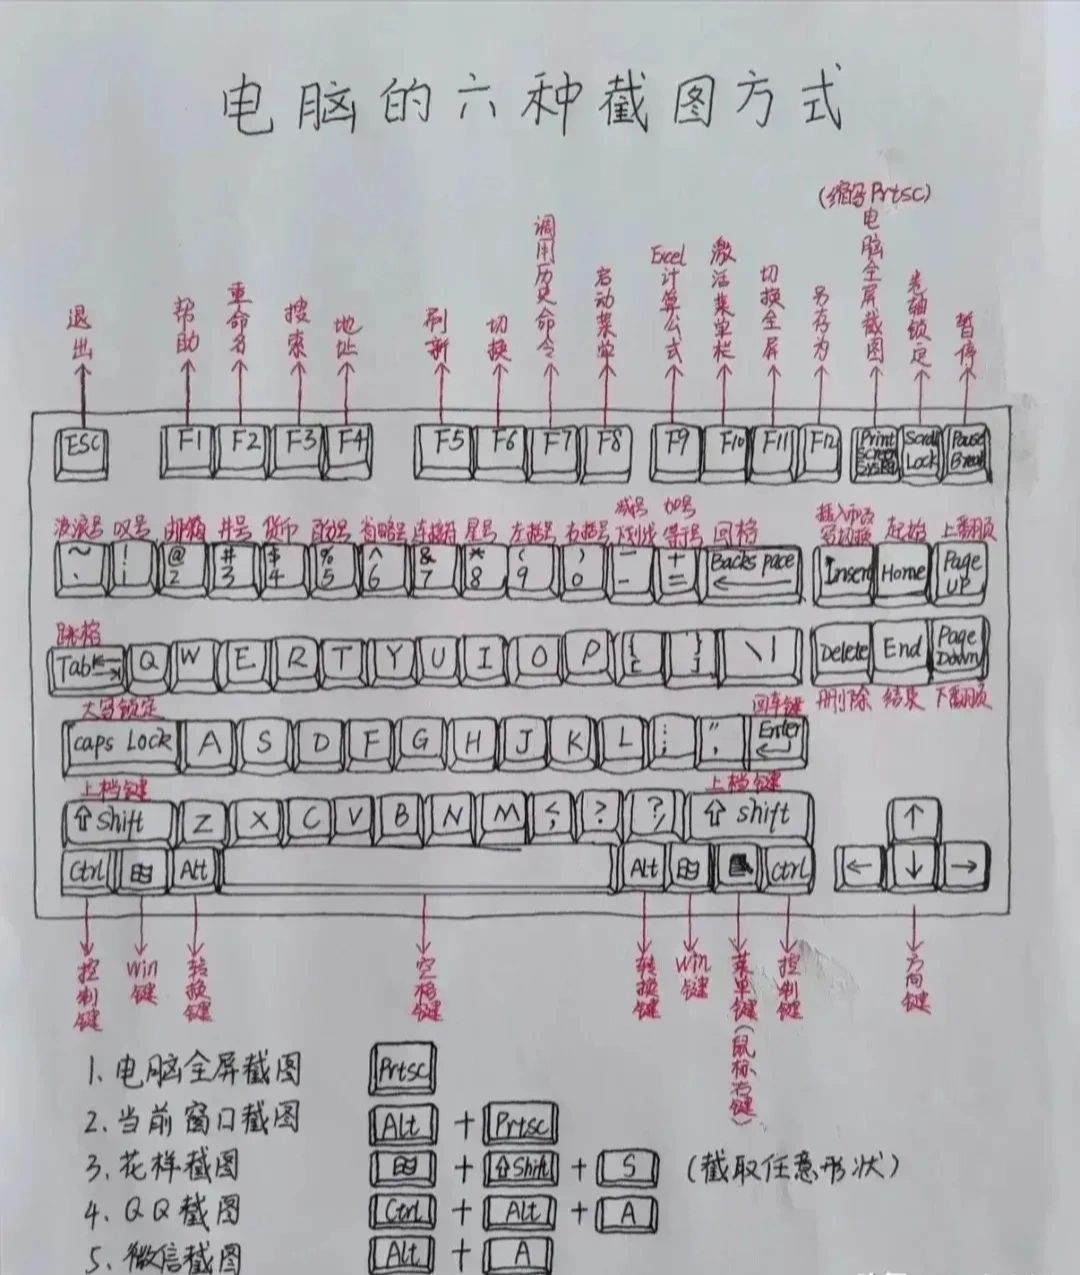 电脑的六种截图方式
(缩写Prtsc)
退出 帮助 重命名 搜索 地址 刷新 切换 调用历史命令 启动菜单 Excel计算公式 激活菜单栏 切换全屏 另存为 电脑全屏截图 光轴锁定 暂停
ESC F1 F2 F3 F4 F5 F6 F7 F8 F9 F10 F11 F12 Print Screen Scroll Lock Pause Break
减号 加号
波浪号 叹号 邮箱 井号 货币 百分号 省略号 连接符 星号 左括号 右括号 下划线 等号 回格 起始 上翻页
~ ! @ # $ % ^ & * ( ) — +
2 3 4 5 6 7 8 9 0 - = Backspace Insert Home Page UP
跳格
Tab Q W E R T Y U I O P { [ } ] \ | Delete End Page Down
大写锁定 回车键 删除 结束 下翻页
caps Lock A S D F G H J K L ; Enter
上档键 上档键
⇧ shift Z X C V B N M < , ? ? / ⇧ shift ↑
Ctrl Alt Alt Ctrl ← ↓ →
控制键 Win键 转换键 空格键 转换键 Win键 菜单键(鼠标右键) 控制键 方向键
1、电脑全屏截图 Prtsc
2、当前窗口截图 Alt + Prtsc
3、花样截图 田 + ⇧Shift + S (截取任意形状)
4、QQ截图 Ctrl + Alt + A
5、微信截图 Alt + A